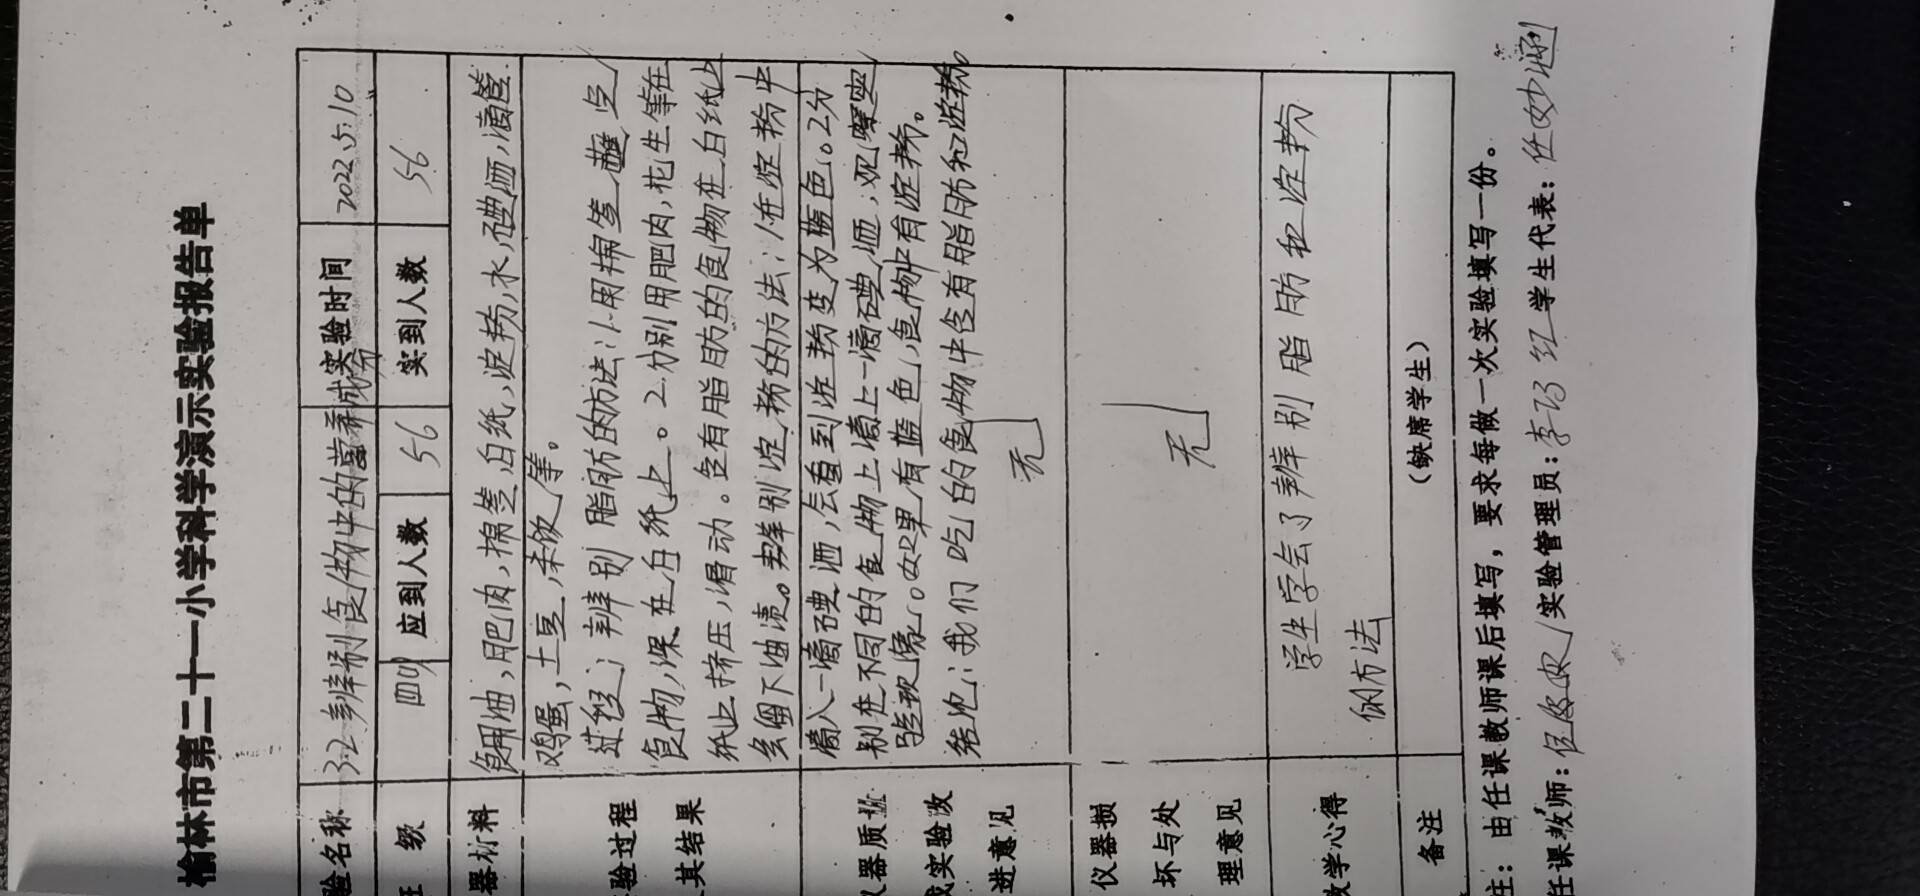 榆林市第二十一小学科学演示实验报告单
验名称 3.2 辨别食物中的营养成分 实验时间 2022.5.10
级 四 应到人数 56 实到人数 56
器材料 食用油,肥肉,棉签,白纸,淀粉,水,碘酒,滴管.
鸡蛋,土豆,米饭等。
验过程 过程:辨别脂肪的方法:1.用棉签蘸点
其结果 食物,深在白纸上。2.分别用肥肉,花生等在
纸上挤压,滑动。含有脂肪的食物在白纸上
会留下油渍。辨别淀粉的方法:1.在淀粉中
仪器质量 滴入一滴碘酒,会看到淀粉变为蓝色。2.分
别在不同的食物上滴上一滴碘酒,观察实
或实验改 验现象。如果有蓝色,食物中有淀粉。
结论:我们吃的食物中含有脂肪和淀粉。
进意见 无
仪器损
坏与处 无
理意见
教学心得 学生学会了辨别脂肪和淀粉
的方法
备注 (缺席学生)
注:由任课教师课后填写,要求每做一次实验填写一份。
任课教师: 实验管理员:李巧红 学生代表:任妙涵